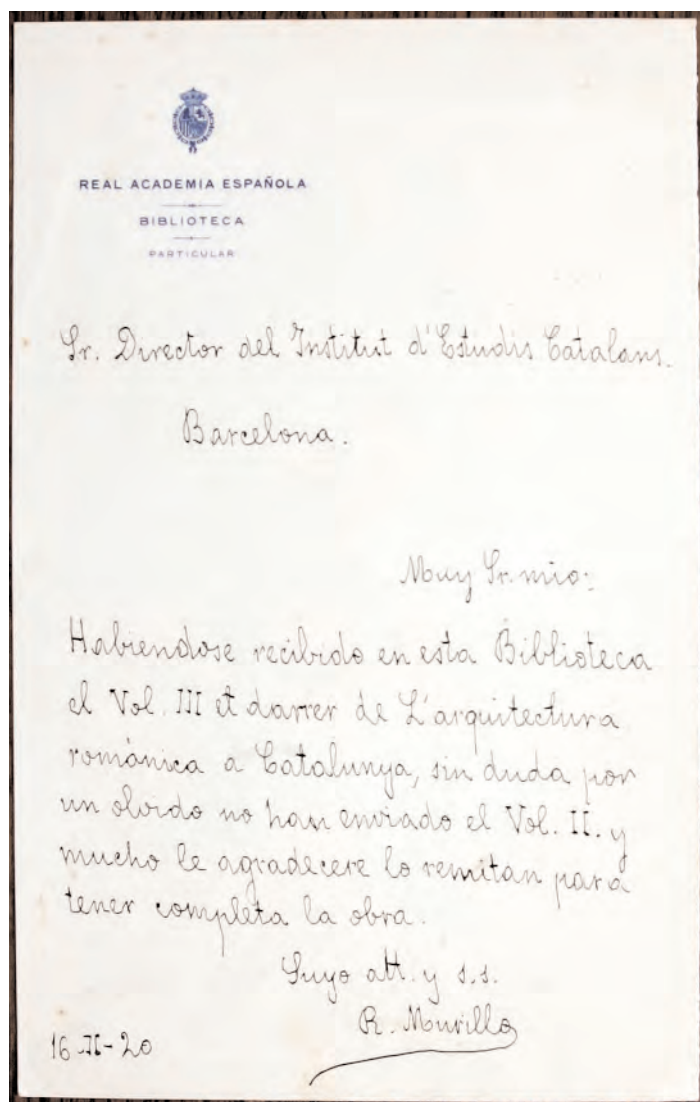 REAL ACADEMIA ESPAÑOLA
BIBLIOTECA
PARTICULAR
Sr. Director del Institut d'Estudis Catalans.
Barcelona.
Muy Sr. mio:
Habiendose recibido en esta Biblioteca
el Vol. III et darrer de L'arquitectura
románica a Catalunya, sin duda por
un olvido no han enviado el Vol. II. y
mucho le agradecere lo remitan para
tener completa la obra.
Suyo att. y s.s.
R. Murillo
16-II-20